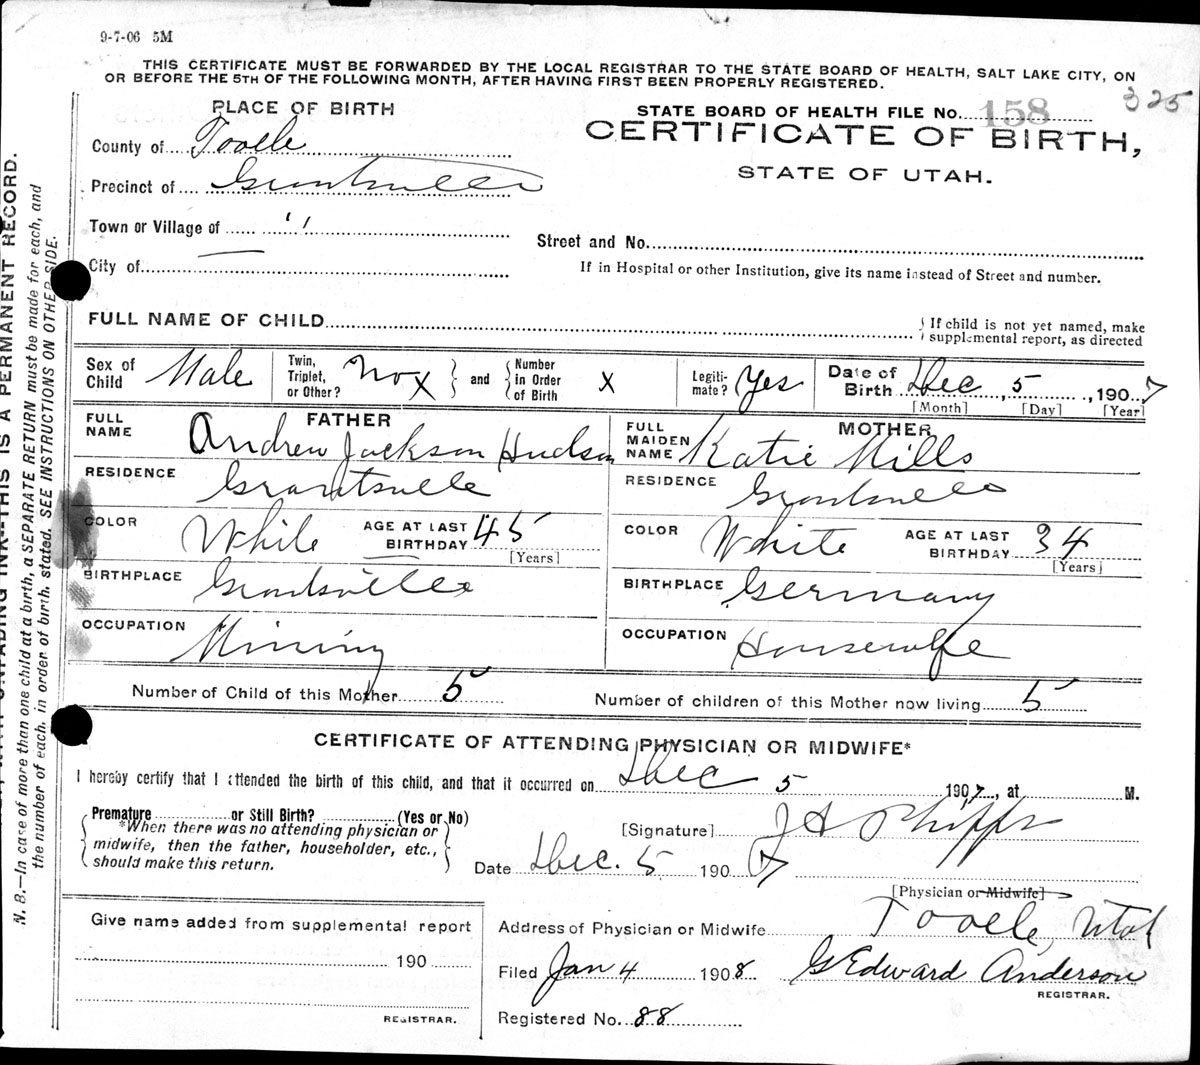 9-7-06 5M
THIS CERTIFICATE MUST BE FORWARDED BY THE LOCAL REGISTRAR TO THE STATE BOARD OF HEALTH, SALT LAKE CITY, ON
OR BEFORE THE 5TH OF THE FOLLOWING MONTH, AFTER HAVING FIRST BEEN PROPERLY REGISTERED.
325
PLACE OF BIRTH
STATE BOARD OF HEALTH FILE No. 158
CERTIFICATE OF BIRTH,
STATE OF UTAH.
County of Tooele
Precinct of Grantsville
Town or Village of "
City of —
Street and No.
If in Hospital or other Institution, give its name instead of Street and number.
FULL NAME OF CHILD
If child is not yet named, make
supplemental report, as directed
Sex of Child Male
Twin, Triplet, or Other? No X and Number in Order of Birth X
Legitimate? Yes
Date of Birth Dec 5, 1907
[Month] [Day] [Year]
FATHER
FULL NAME Andrew Jackson Hudson
MOTHER
FULL MAIDEN NAME Katie Mills
RESIDENCE Grantsville
RESIDENCE Grantsville
COLOR White AGE AT LAST BIRTHDAY 45 [Years]
COLOR White AGE AT LAST BIRTHDAY 34 [Years]
BIRTHPLACE Grantsville
BIRTHPLACE Germany
OCCUPATION Mining
OCCUPATION Housewife
Number of Child of this Mother 5
Number of children of this Mother now living 5
CERTIFICATE OF ATTENDING PHYSICIAN OR MIDWIFE*
I hereby certify that I attended the birth of this child, and that it occurred on Dec 5 1907, at M.
Premature or Still Birth? (Yes or No)
*When there was no attending physician or
midwife, then the father, householder, etc.,
should make this return.
[Signature] J A Phipps
Date Dec. 5 1907
[Physician or Midwife]
Give name added from supplemental report
190
REGISTRAR.
Address of Physician or Midwife Tooele, Utah
Filed Jan 4 1908. G Edward Anderson
REGISTRAR.
Registered No. 88
THIS IS A PERMANENT RECORD.
N. B.—In case of more than one child at a birth, a SEPARATE RETURN must be made for each, and
the number of each, in order of birth, stated. SEE INSTRUCTIONS ON OTHER SIDE.